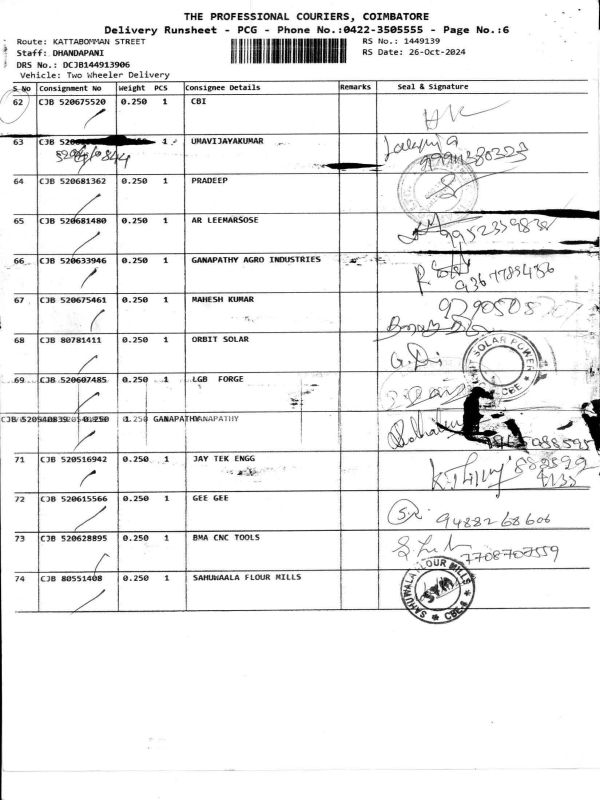 THE PROFESSIONAL COURIERS, COIMBATORE
Delivery Runsheet - PCG - Phone No.:0422-3505555 - Page No.:6
Route: KATTABOMMAN STREET RS No.: 1449139
Staff: DHANDAPANI RS Date: 26-Oct-2024
DRS No.: DCJB144913906
Vehicle: Two Wheeler Delivery
S No Consignment No Weight PCS Consignee Details Remarks Seal & Signature
62 CJB 520675520 0.250 1 CBI
63 CJB 1 UMAVIJAYAKUMAR
64 CJB 520681362 0.250 1 PRADEEP
65 CJB 520681480 0.250 1 AR LEEMARSOSE
66 CJB 520633946 0.250 1 GANAPATHY AGRO INDUSTRIES
9367789456
67 CJB 520675461 0.250 1 MAHESH KUMAR
68 CJB 80781411 0.250 1 ORBIT SOLAR
SOLAR POWER
CBE
69 CJB 520607485 0.250 1 LGB FORGE
CJB 0.250 GANAPATHY
71 CJB 520516942 0.250 1 JAY TEK ENGG
72 CJB 520615566 0.250 1 GEE GEE
9488268606
73 CJB 520628895 0.250 1 BMA CNC TOOLS
7708707559
74 CJB 80551408 0.250 1 SAHUWAALA FLOUR MILLS
SAHUWALA FLOUR MILLS
CBE-4